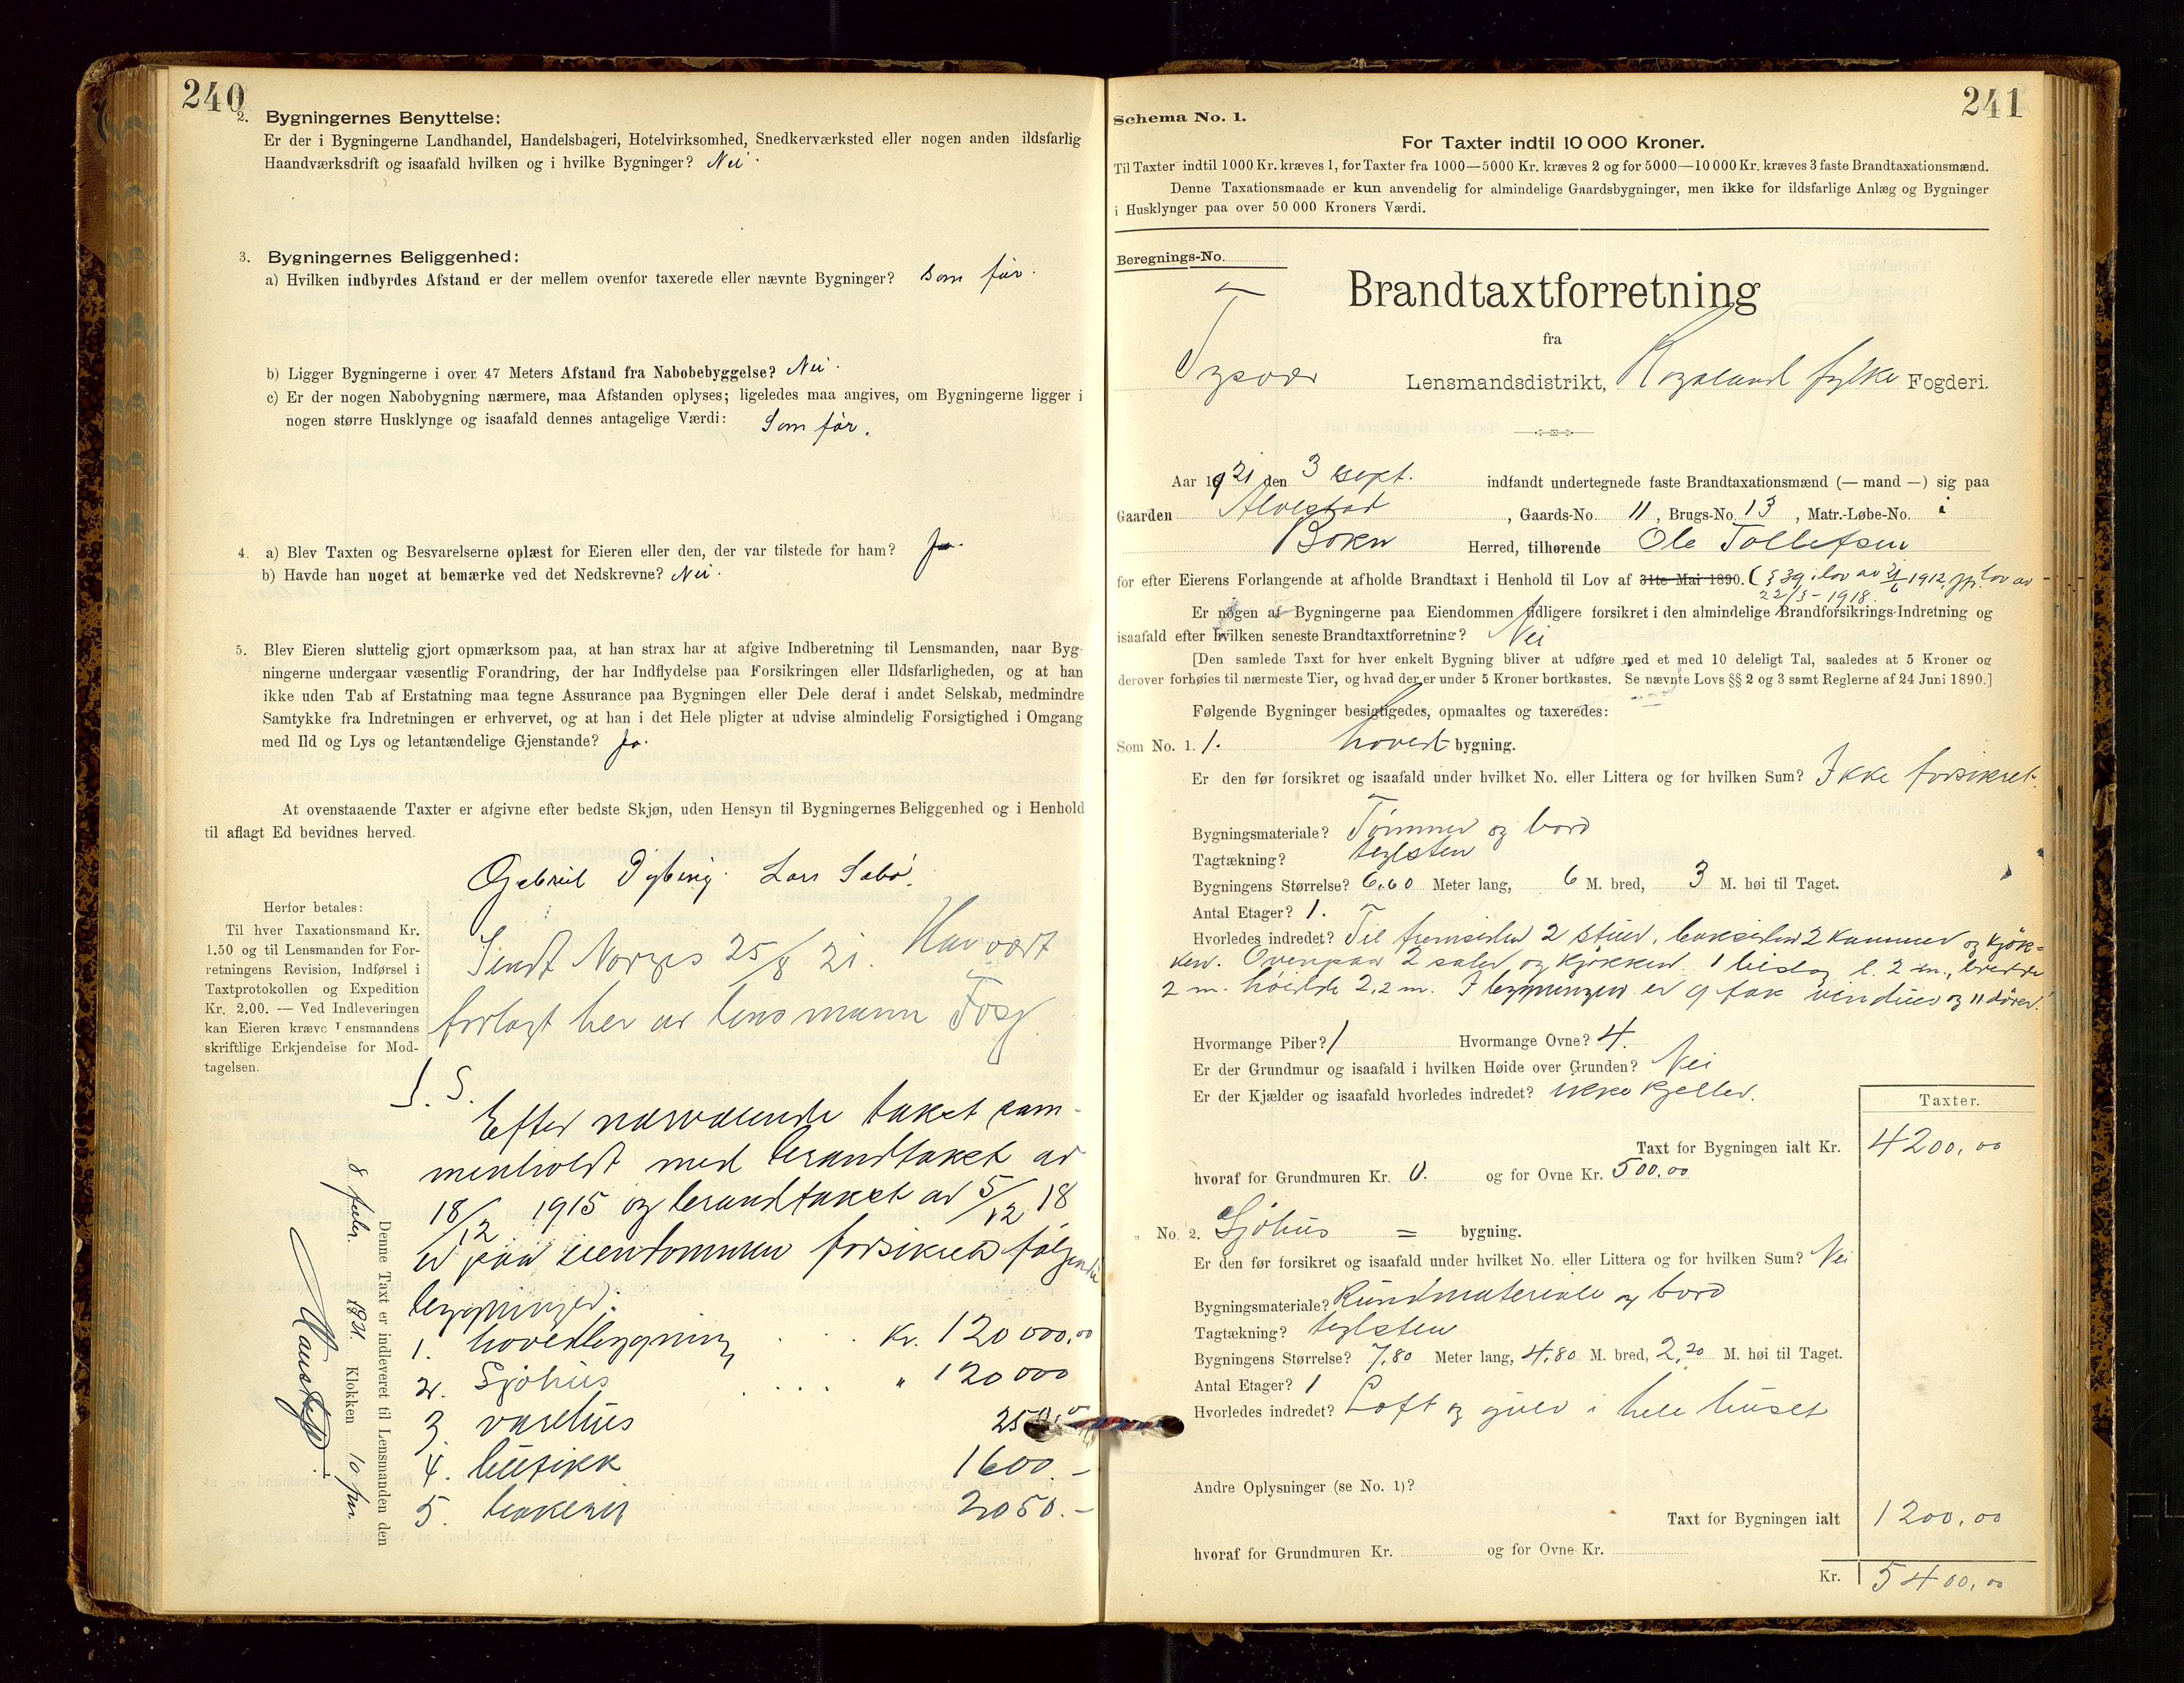 240
2. Bygningernes Benyttelse:
Er der i Bygningerne Landhandel, Handelsbageri, Hotelvirksomhed, Snedkerværksted eller nogen anden ildsfarlig
Haandværksdrift og isaafald hvilken og i hvilke Bygninger? Nei.
3. Bygningernes Beliggenhed:
a) Hvilken indbyrdes Afstand er der mellem ovenfor taxerede eller nævnte Bygninger? Som før.
b) Ligger Bygningerne i over 47 Meters Afstand fra Nabobebyggelse? Nei.
c) Er der nogen Nabobygning nærmere, maa Afstanden oplyses; ligeledes maa angives, om Bygningerne ligger i
nogen større Husklynge og isaafald dennes antagelige Værdi: Som før.
4. a) Blev Taxten og Besvarelserne oplæst for Eieren eller den, der var tilstede for ham? Ja.
b) Havde han noget at bemærke ved det Nedskrevne? Nei.
5. Blev Eieren sluttelig gjort opmærksom paa, at han strax har at afgive Indberetning til Lensmanden, naar Byg-
ningerne undergaar væsentlig Forandring, der har Indflydelse paa Forsikringen eller Ildsfarligheden, og at han
ikke uden Tab af Erstatning maa tegne Assurance paa Bygningen eller Dele deraf i andet Selskab, medmindre
Samtykke fra Indretningen er erhvervet, og at han i det Hele pligter at udvise almindelig Forsigtighed i Omgang
med Ild og Lys og letantændelige Gjenstande? Ja.
At ovenstaaende Taxter er afgivne efter bedste Skjøn, uden Hensyn til Bygningernes Beliggenhed og i Henhold
til aflagt Ed bevidnes herved.
Gabriel Lars
Herfor betales:
Til hver Taxationsmand Kr.
1.50 og til Lensmanden for For-
retningens Revision, Indførsel i
Taxtprotokollen og Expedition
Kr. 2.00. — Ved Indleveringen
kan Eieren kræve Lensmandens
skriftlige Erkjendelse for Mod-
tagelsen.
Sendt Norges 25/8 21. Har vært
forlagt her av lensmann
Denne Taxt er indleveret til Lensmanden den
8 febr. 1921 Klokken 10 fm.
Efter nærværende takst sam-
menholdt med brandtakst av
18/12 1915 og brandtakst av 5/12 18
er paa eiendommen forsikret følgende
bygninger:
1. hovedbygning . . . Kr. 120000,00
2. Sjøhus . . . . " 120000
3. varehus
4. butikk 1600.-
5. bakeri 2050.-
241
Schema No. 1.
For Taxter indtil 10 000 Kroner.
Til Taxter indtil 1000 Kr. kræves 1, for Taxter fra 1000—5000 Kr. kræves 2 og for 5000—10 000 Kr. kræves 3 faste Brandtaxationsmænd.
Denne Taxationsmaade er kun anvendelig for almindelige Gaardsbygninger, men ikke for ildsfarlige Anlæg og Bygninger
i Husklynger paa over 50 000 Kroners Værdi.
Beregnings-No.
Brandtaxtforretning
fra
Tysvær Lensmandsdistrikt, Rogaland fylke Fogderi.
Aar 1921 den 3 sept. indfandt undertegnede faste Brandtaxationsmænd (— mand —) sig paa
Gaarden Alvestad, Gaards-No. 11, Brugs-No. 13, Matr.-Løbe-No. i
Bokn Herred, tilhørende Ole Tollefsen
for efter Eierens Forlangende at afholde Brandtaxt i Henhold til Lov af 31te Mai 1890. (§ 39 i lov av 21/6 1912, jfr. lov av
22/3 - 1918.
Er nogen af Bygningerne paa Eiendommen tidligere forsikret i den almindelige Brandforsikrings-Indretning og
isaafald efter hvilken seneste Brandtaxtforretning? Nei
[Den samlede Taxt for hver enkelt Bygning bliver at udføre med et med 10 deleligt Tal, saaledes at 5 Kroner og
derover forhøies til nærmeste Tier, og hvad der er under 5 Kroner bortkastes. Se nævnte Lovs §§ 2 og 3 samt Reglerne af 24 Juni 1890.]
Følgende Bygninger besigtigedes, opmaaltes og taxeredes:
Som No. 1. 1. hovedbygning.
Er den før forsikret og isaafald under hvilket No. eller Littera og for hvilken Sum? Ikke forsikret.
Bygningsmateriale? Tømmer og bord
Tagtækning? teglsten
Bygningens Størrelse? 6,60 Meter lang, 6 M. bred, 3 M. høi til Taget.
Antal Etager? 1.
Hvorledes indredet? Til fremsiden 2 stuer, baksiden 2 kammer og kjøk-
ken. Ovenpaa 2 saler og kjøkken. 1 bislag l. 2 m., bredde
2 m. høide 2,2 m. I bygningen er 9 fak vinduer og 11 dører.
Hvormange Piber? 1 Hvormange Ovne? 4.
Er der Grundmur og isaafald i hvilken Høide over Grunden? Nei
Er der Kjælder og isaafald hvorledes indredet? ikke kjeller.
Taxter.
Taxt for Bygningen ialt Kr. 4200,00
hvoraf for Grundmuren Kr. 0. og for Ovne Kr. 500,00
" No. 2. Sjøhus = bygning.
Er den før forsikret og isaafald under hvilket No. eller Littera og for hvilken Sum? Nei
Bygningsmateriale? Rundmateriale og bord
Tagtækning? teglsten
Bygningens Størrelse? 7,80 Meter lang, 4,80 M. bred, 2,20 M. høi til Taget.
Antal Etager? 1
Hvorledes indredet? Loft og gulv i hele huset
Andre Oplysninger (se No. 1)?
Taxt for Bygningen ialt 1200,00
hvoraf for Grundmuren Kr. og for Ovne Kr.
Kr. 5400,00